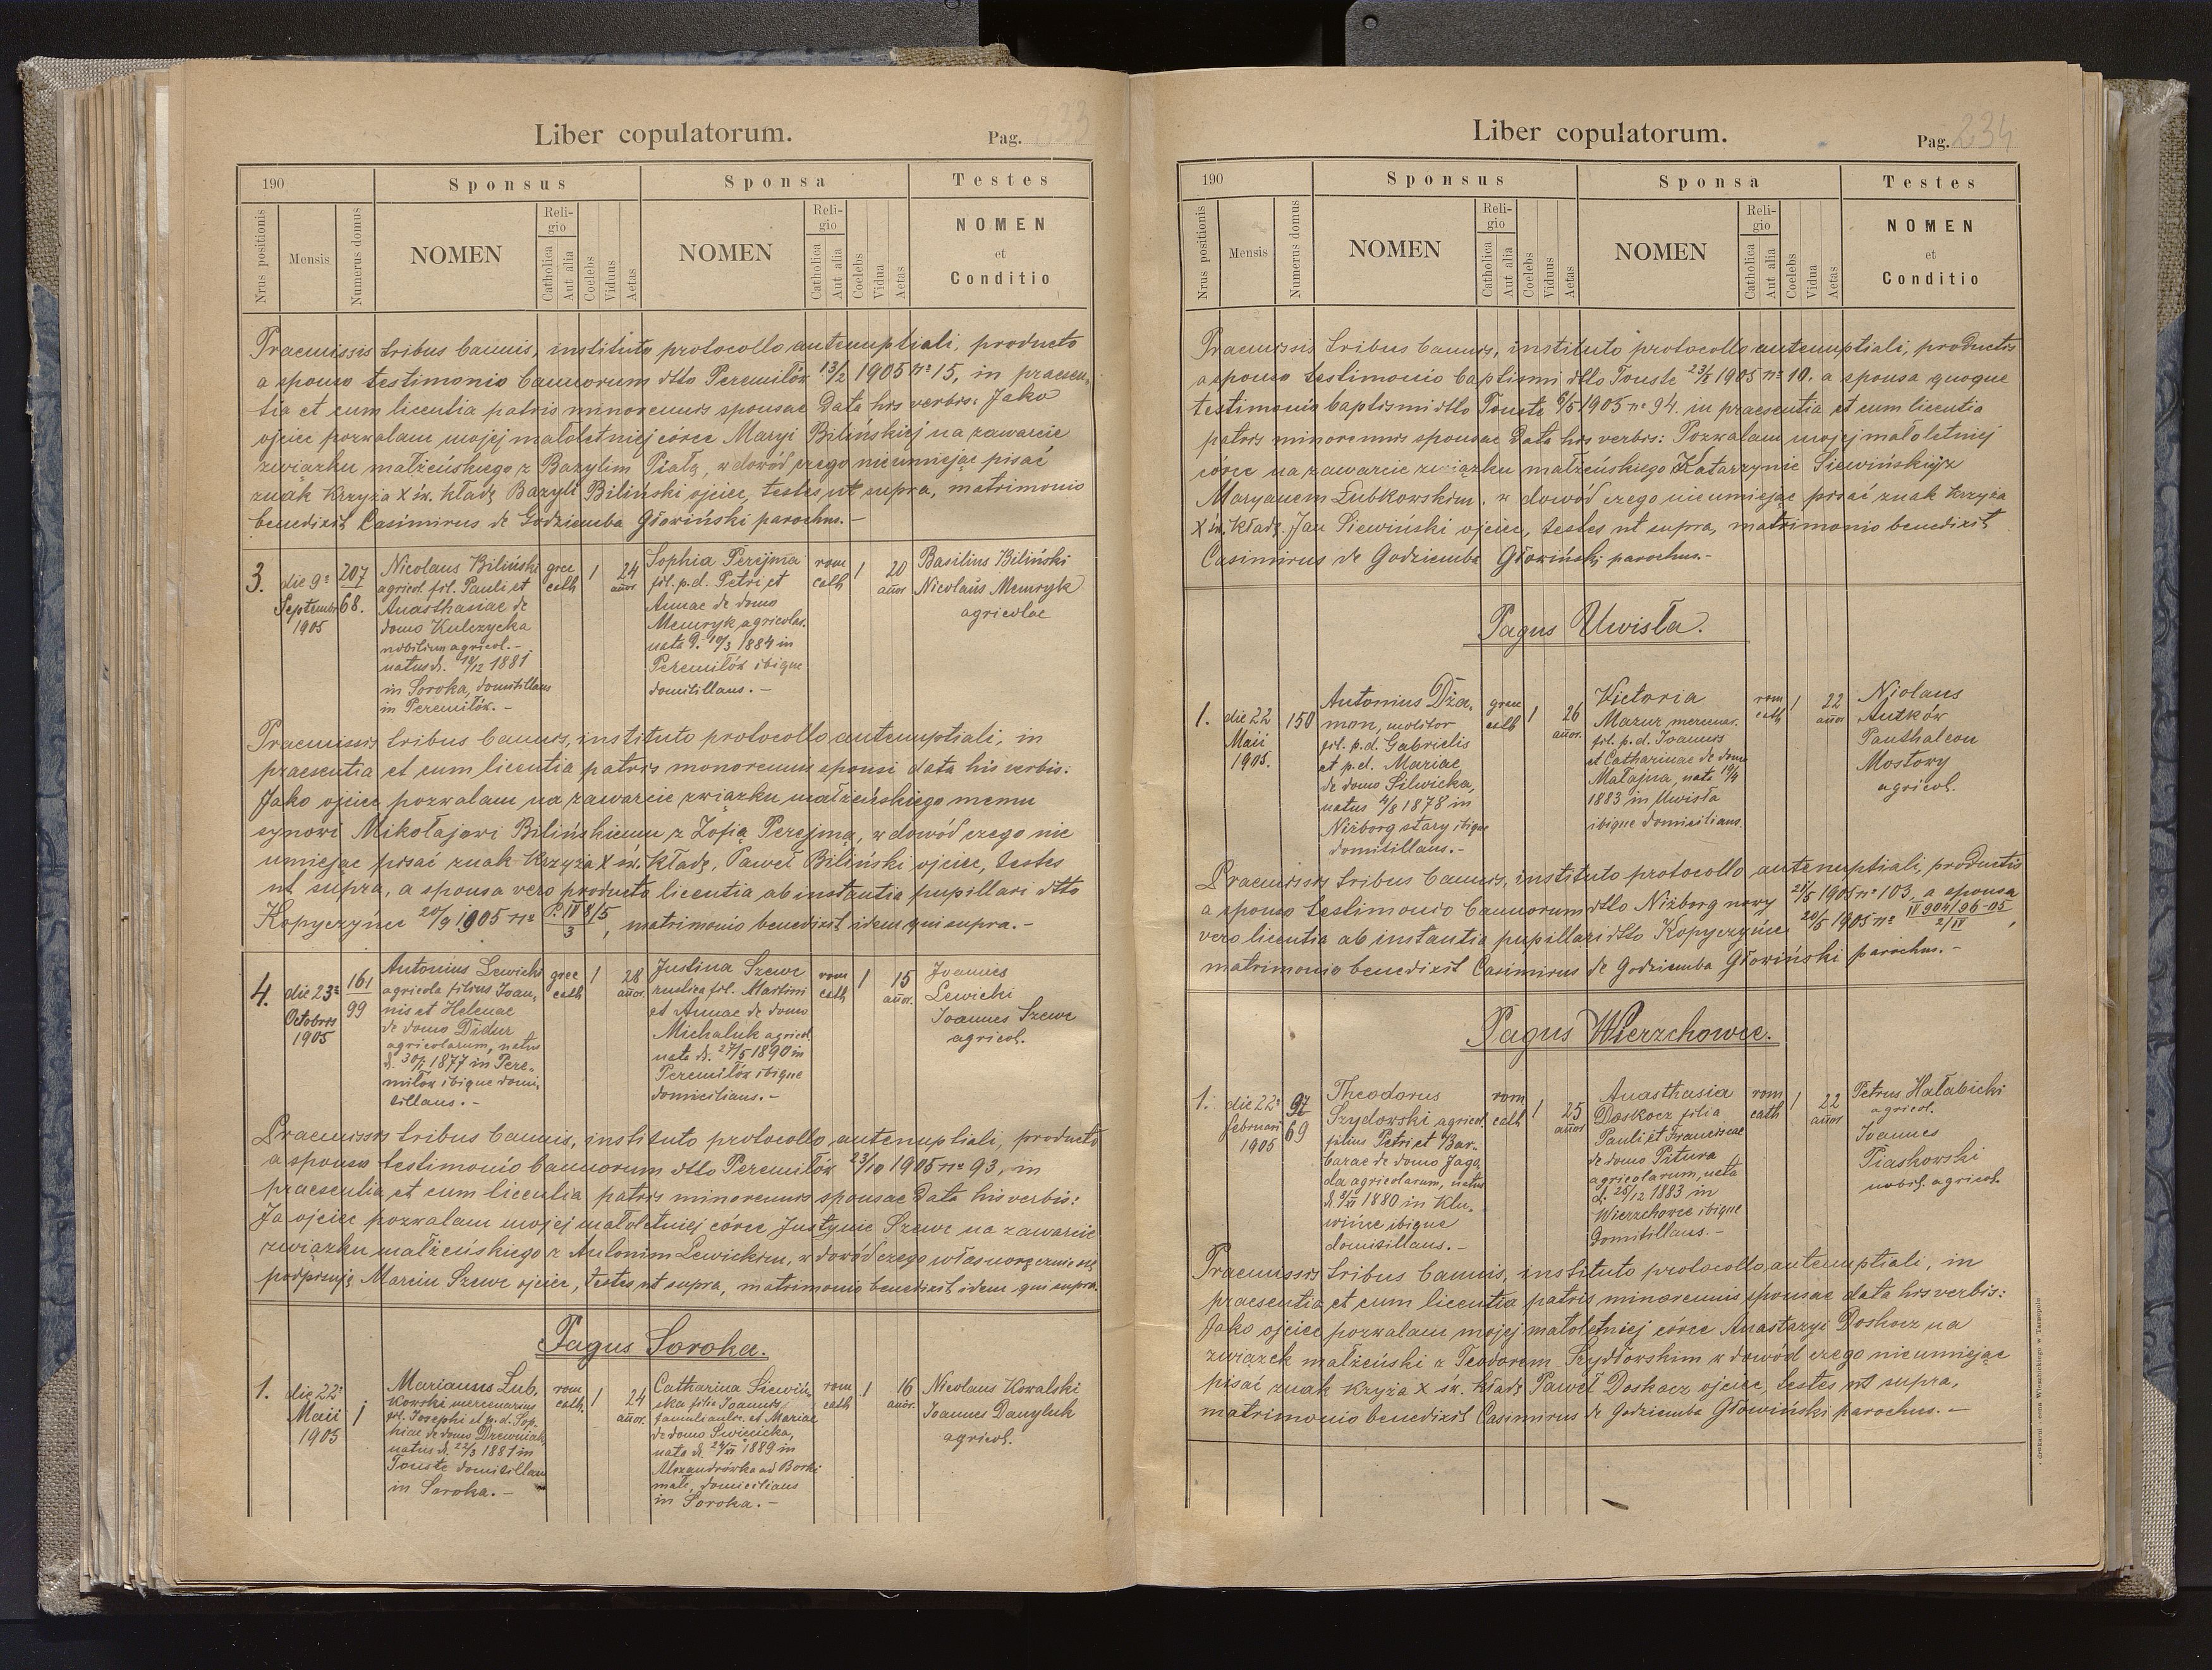 Liber copulatorum.
Pag. 233
190
Sponsus
Sponsa
Testes
Nrus positionis
Mensis
Numerus domus
NOMEN
Religio
Catholica
Aut alia
Coelebs
Viduus
Aetas
NOMEN
Religio
Catholica
Aut alia
Coelebs
Vidua
Aetas
NOMEN
et
Conditio
Praemissis tribus bannis, instituto protocollo antenuptiali, producto
a sponso testimonio bannorum dtto Peremilów 13/2 1905 nº 15, in praesen-
tia et cum licentia patris minorennis sponsae data his verbis: Jako
ojciec pozwalam mojej małoletniej córce Maryi Bilińskiej na zawarcie
związku małżeńskiego z Bazylim Piałą, w dowód czego nieumiejąc pisać
znak Krzyża X św. kładę Bazyli Biliński ojciec, testes ut supra, matrimonio
benedixit Casimirus de Godziemba Głowiński parochus.-
3.
die 9ª
Septembr
1905
207
68.
Nicolaus Biliński
agricol. fil. Pauli et
Anasthasiae de
domo Kulczycka
nobilium agricol.-
natus d. 19/12 1881
in Soroka, domitillans
in Peremilów.-
grec
cath
1
24
annor
Sophia Perejma
fil. p.d. Petri et
Annae de domo
Memryk agricolar.
nata d. 10/3 1884 in
Peremilów ibique
domitillans.-
rom
cath
1
20
annor
Basilius Biliński
Nicolaus Memryk
agricolae
Praemissis tribus bannis, instituto protocollo antenuptiali, in
praesentia et cum licentia patris monorennis sponsi data his verbis:
Jako ojciec pozwalam na zawarcie związku małżeńskiego memu
synowi Mikołajowi Bilińskiemu z Zofią Perejmą, w dowód czego nie
umiejąc pisać znak Krzyża X św. Kładę, Paweł Biliński ojciec, testes
ut supra, a sponsa vero producta licentia ab instantia pupillari dtto
Kopyczyńce 20/9 1905 nº P. IV 8/5 / 3, matrimonio benedixit idem qui supra.-
4.
die 23ª
Octobris
1905
161
99
Antonius Lewicki
agricola filius Joan-
nis et Helenae
de domo Didur
agricolarum, natus
d. 30/1 1877 in Pere-
milów ibique domi-
tillans.-
grec
cath
1
28
annor.
Justina Szewc
rustica fil. Martini
et Annae de domo
Michaluk agricol.
nata d. 27/5 1890 in
Peremilów ibique
domicilians.-
rom
cath
1
15
annor.
Joannes
Lewicki
Joannes Szewc
agricol.
Praemissis tribus bannis, instituto protocollo antenuptiali, producto
a sponso testimonio bannorum dtto Peremilów 23/10 1905 nº 93, in
praesentia et cum licentia patris minorennis sponsae data his verbis:
Ja ojciec pozwalam mojej małoletniej córce Justynie Szewc na zawarcie
związku małżeńskiego z Antonim Lewickim, w dowód czego własnoręcznie się
podpisuję Marcin Szewc ojciec, testes ut supra, matrimonio benedixit idem qui supra.
Pagus Soroka.
1.
die 22ª
Maii
1905
1
Marianus Lub-
kowski mercenarius
fil. Josephi et p.d. Sop-
hiae de domo Drewniak,
natus d. 22/3 1881 in
Touste domicillans
in Soroka.-
rom
cath.
1
24
annor.
Catharina Siewiń-
ska filia Joannis
famuli aulic. et Mariae
de domo Swinicka,
nata d. 24/XI 1889 in
Alexandrówka ad Borki
małe, domicilians
in Soroka.-
rom
cath
1
16
annor.
Nicolaus Kowalski
Joannes Danyluk
agricol.
Liber copulatorum.
Pag. 234
190
Sponsus
Sponsa
Testes
Nrus positionis
Mensis
Numerus domus
NOMEN
Religio
Catholica
Aut alia
Coelebs
Viduus
Aetas
NOMEN
Religio
Catholica
Aut alia
Coelebs
Vidua
Aetas
NOMEN
et
Conditio
Praemissis tribus bannis, instituto protocollo antenuptiali, productis
a sponso testimonio baptismi dtto Touste 23/5 1905 nº 10. a sponsa quoque
testimonio baptismi dtto Touste 6/5 1905 nº 94. in praesentia et cum licentia
patris minorennis sponsae data his verbis: Pozwalam mojej małoletniej
córce na zawarcie związku małżeńskiego Katarzynie Siewińskiej z
Maryanem Łubkowskim, w dowód czego nieumiejąc pisać, znak krzyża
X św. Kładę. Jan Siewiński ojciec, testes ut supra, matrimonio benedixit
Casimirus de Godziemba Głowiński parochus.-
Pagus Uwisła.
1.
die 22
Maii
1905.
150
Antonius Dża-
mon, molitor
fil. p.d. Gabrielis
et p.d. Mariae
de domo Silwicka,
natus 4/8 1878 in
Niżborg stary ibique
domitillans.-
grec
cath
1
26
annor.
Victoria
Mazur, mercenar.
fil. p.d. Joannis
et Catharinae de domo
Małajna, nata 19/4
1883 in Uwisła
ibique domicilians.
rom
cath
1
22
annor
Niolaus
Antków
Panthaleon
Mostowy
agricol.
Praemissis tribus bannis, instituto protocollo antenuptiali, productis
a sponso testimonio bannorum dtto Niżborg nowy 21/5 1905 nº 103, a sponsa
vero licentia ab instantia pupillari dtto Kopyczyńce 20/5 1905 nº IV 904/96-05 / 2/IV,
matrimonio benedixit Casimirus de Godziemba Głowiński parochus.-
Pagus Wierzchowce.
1.
die 22ª
februari
1905
97
69
Theodorus
Szydowski, agricol.
filius Petri et Bar-
barae de domo Jago-
da agricolarum, natus
d. 9/XI 1880 in Klu-
wińce ibique
domitillans.-
rom
cath
1
25
annor
Anasthasia
Doskocz filia
Pauli et Franciscae
de domo Pitura
agricolarum, nata
d. 25/12 1883 in
Wierzchowce ibique
Domitillans.-
rom
cath
1
22
annor
Petrus Hałabicki
agricol.
Joannes
Piaskowski
nobil. agricol.
Praemissis tribus bannis, instituto protocollo antenuptiali, in
praesentia et cum licentia patris minorennis sponsae data his verbis:
Jako ojciec pozwalam mojej małoletniej córce Anastazyi Doskocz na
związek małżeński z Teodorem Szydłowskim w dowód czego nieumiejąc
pisać znak krzyża X św. Kładę Paweł Doskocz ojciec, testes ut supra,
matrimonio benedixit Casimirus de Godziemba Głowiński parochus.-
Wierzbickiego w Tarnopolu